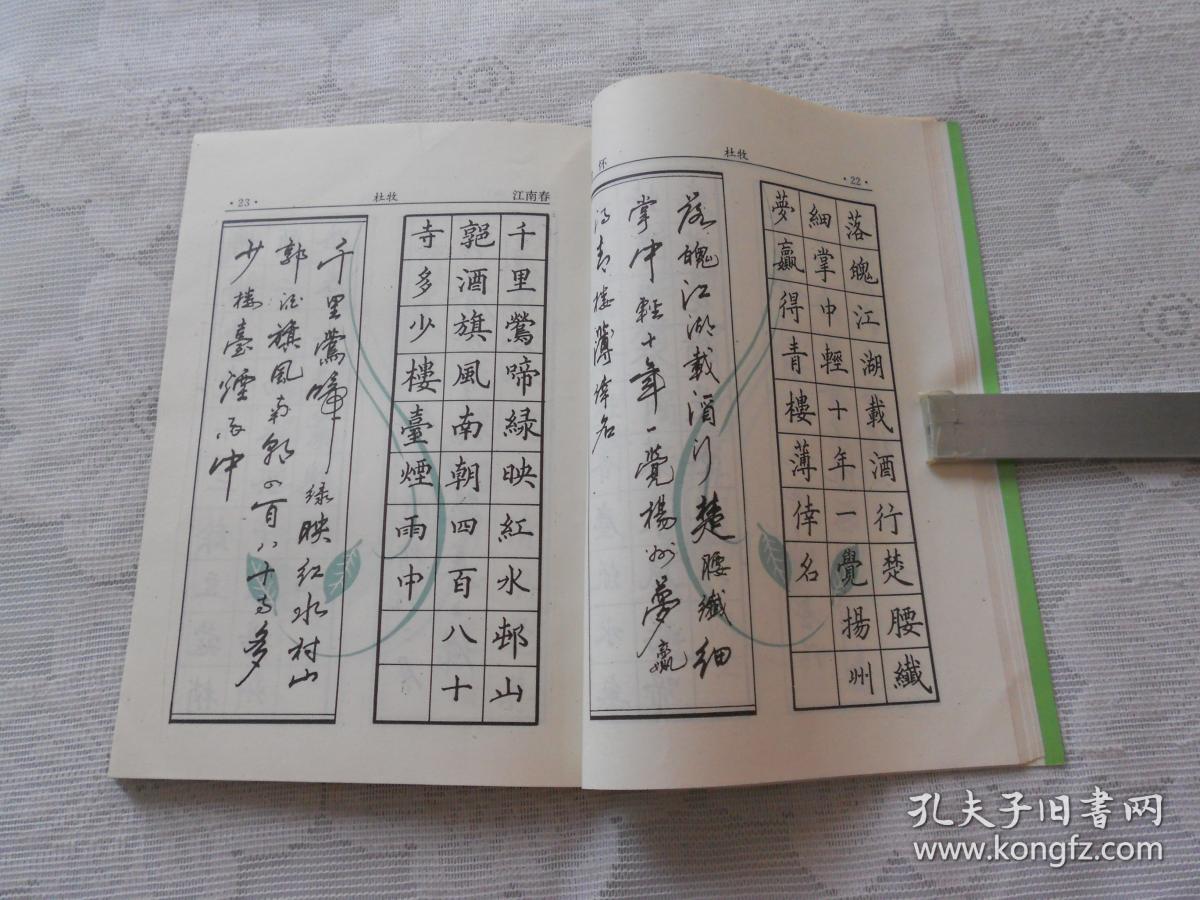 怀 杜牧 ·22·
落魄江湖載酒行楚腰纖
細掌中輕十年一覺揚州
夢贏得青樓薄倖名
落魄江湖載酒行楚腰纖細
掌中輕十年一覺揚州夢贏
得青樓薄倖名
·23· 杜牧 江南春
千里鶯啼緑映紅水邨山
郭酒旗風南朝四百八十
寺多少樓臺煙雨中
千里鶯啼緑映紅水村山
郭酒旗風南朝四百八十寺多
少樓臺煙雨中
孔夫子旧书网
www.kongfz.com